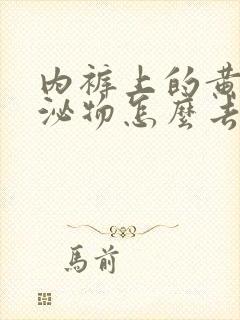 内裤上的黄
泌物怎麼去
馬前